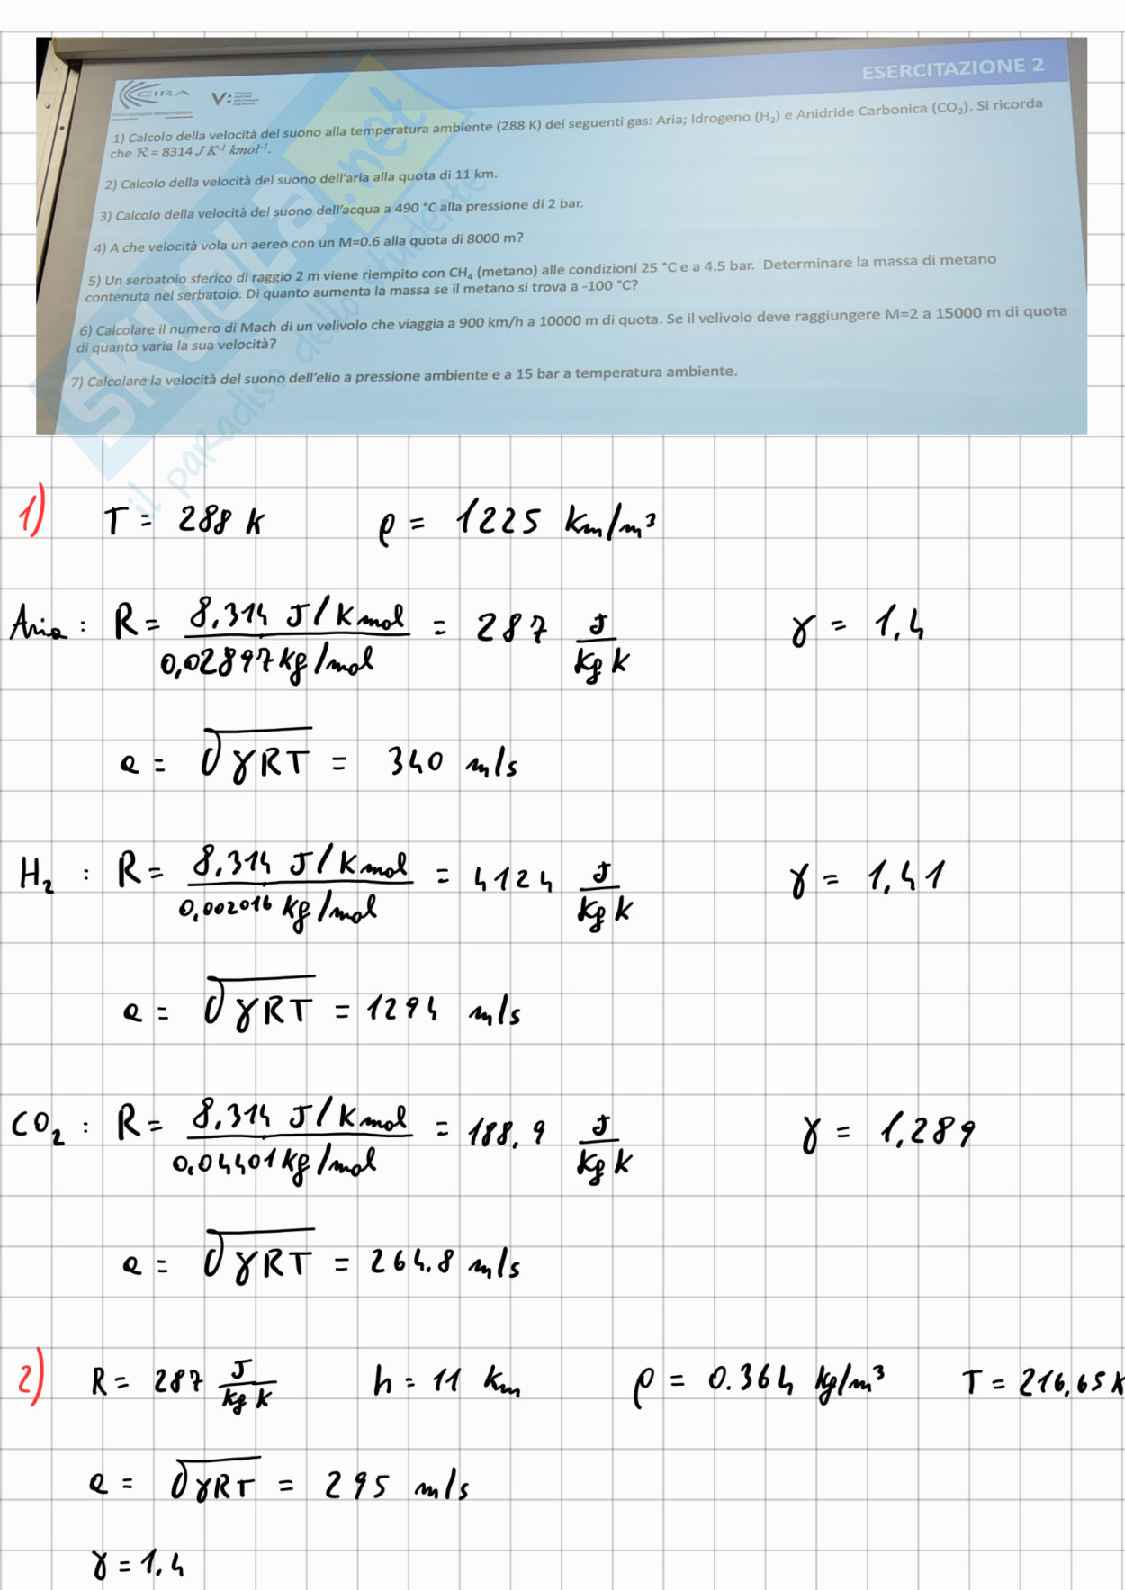 ESERCITAZIONE 2
CIRA
1) Calcolo della velocità del suono alla temperatura ambiente (288 K) dei seguenti gas: Aria; Idrogeno (H₂) e Anidride Carbonica (CO₂). Si ricorda
che ℛ = 8314 J K⁻¹ kmol⁻¹.
2) Calcolo della velocità del suono dell'aria alla quota di 11 km.
3) Calcolo della velocità del suono dell'acqua a 490 °C alla pressione di 2 bar.
4) A che velocità vola un aereo con un M=0.6 alla quota di 8000 m?
5) Un serbatoio sferico di raggio 2 m viene riempito con CH₄ (metano) alle condizioni 25 °C e a 4.5 bar. Determinare la massa di metano
contenuta nel serbatoio. Di quanto aumenta la massa se il metano si trova a -100 °C?
6) Calcolare il numero di Mach di un velivolo che viaggia a 900 km/h a 10000 m di quota. Se il velivolo deve raggiungere M=2 a 15000 m di quota
di quanto varia la sua velocità?
7) Calcolare la velocità del suono dell'elio a pressione ambiente e a 15 bar a temperatura ambiente.
SKUOLA.net
il paradiso dello studente
1) T = 288 K ρ = 1225 km/m³
Aria : R = 8,314 J/Kmol / 0,02897 kg/mol = 287 J/kg k γ = 1,4
a = √γRT = 340 m/s
H₂ : R = 8,314 J/Kmol / 0,002016 kg/mol = 4124 J/kg k γ = 1,41
a = √γRT = 1294 m/s
CO₂ : R = 8,314 J/Kmol / 0,04401 kg/mol = 188,9 J/kg k γ = 1,289
a = √γRT = 264.8 m/s
2) R = 287 J/kg k h = 11 km ρ = 0.364 kg/m³ T = 216,65 K
a = √γRT = 295 m/s
γ = 1,4